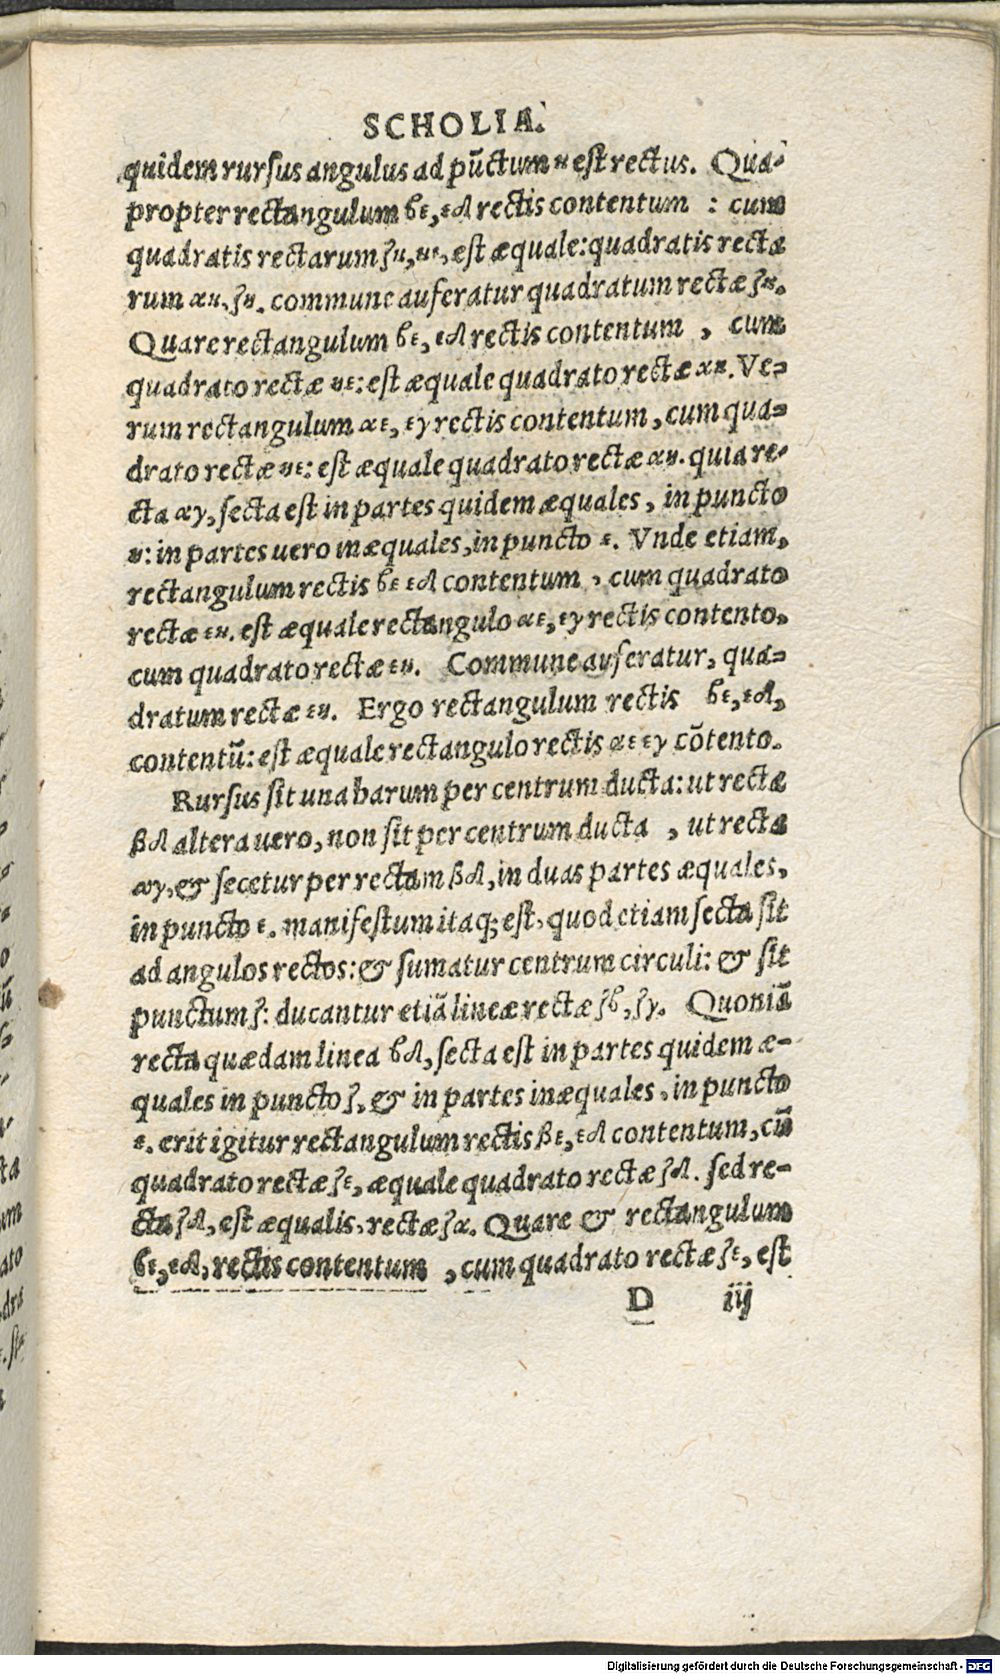 SCHOLIA.
quidem rursus angulus ad pũctum η est rectus. Qua-
propter rectangulum βε, εδ rectis contentum : cum
quadratis rectarum ζη, ηε, est æquale: quadratis recta
rum αη, ζη. commune auferatur quadratum rectæ ζη.
Quare rectangulum βε, εδ rectis contentum , cum
quadrato rectæ ηε: est æquale quadrato rectæ αη. Ve-
rum rectangulum αε, εγ rectis contentum, cum qua-
drato rectæ ηε: est æquale quadrato rectæ αη. quia re-
cta αγ, secta est in partes quidem æquales, in puncto
η: in partes uero inæquales, in puncto ε. Vnde etiam,
rectangulum rectis βε εδ contentum , cum quadrato
rectæ εη. est æquale rectangulo αε, εγ rectis contento,
cum quadrato rectæ εη. Commune auferatur, qua-
dratum rectæ εη. Ergo rectangulum rectis βε, εδ,
contentũ: est æquale rectangulo rectis αε εγ cõtento.
Rursus sit una harum per centrum ducta: ut rectæ
βδ altera uero, non sit per centrum ducta , ut recta
αγ, & secetur per rectam βδ, in duas partes æquales,
in puncto ε. manifestum itaq; est, quod etiam secta sit
ad angulos rectos: & sumatur centrum circuli: & sit
punctum ζ: ducantur etiã lineæ rectæ ζβ, ζγ. Quoniã
recta quædam linea βδ, secta est in partes quidem æ-
quales in puncto ζ, & in partes inæquales, in puncto
ε. erit igitur rectangulum rectis βε, εδ contentum, cũ
quadrato rectæ ζε, æquale quadrato rectæ ζδ. sed re-
cta ζδ, est æqualis, rectæ ζα. Quare & rectangulum
βε, εδ, rectis contentum , cum quadrato rectæ ζε, est
D iij
Digitalisierung gefördert durch die Deutsche Forschungsgemeinschaft - DFG